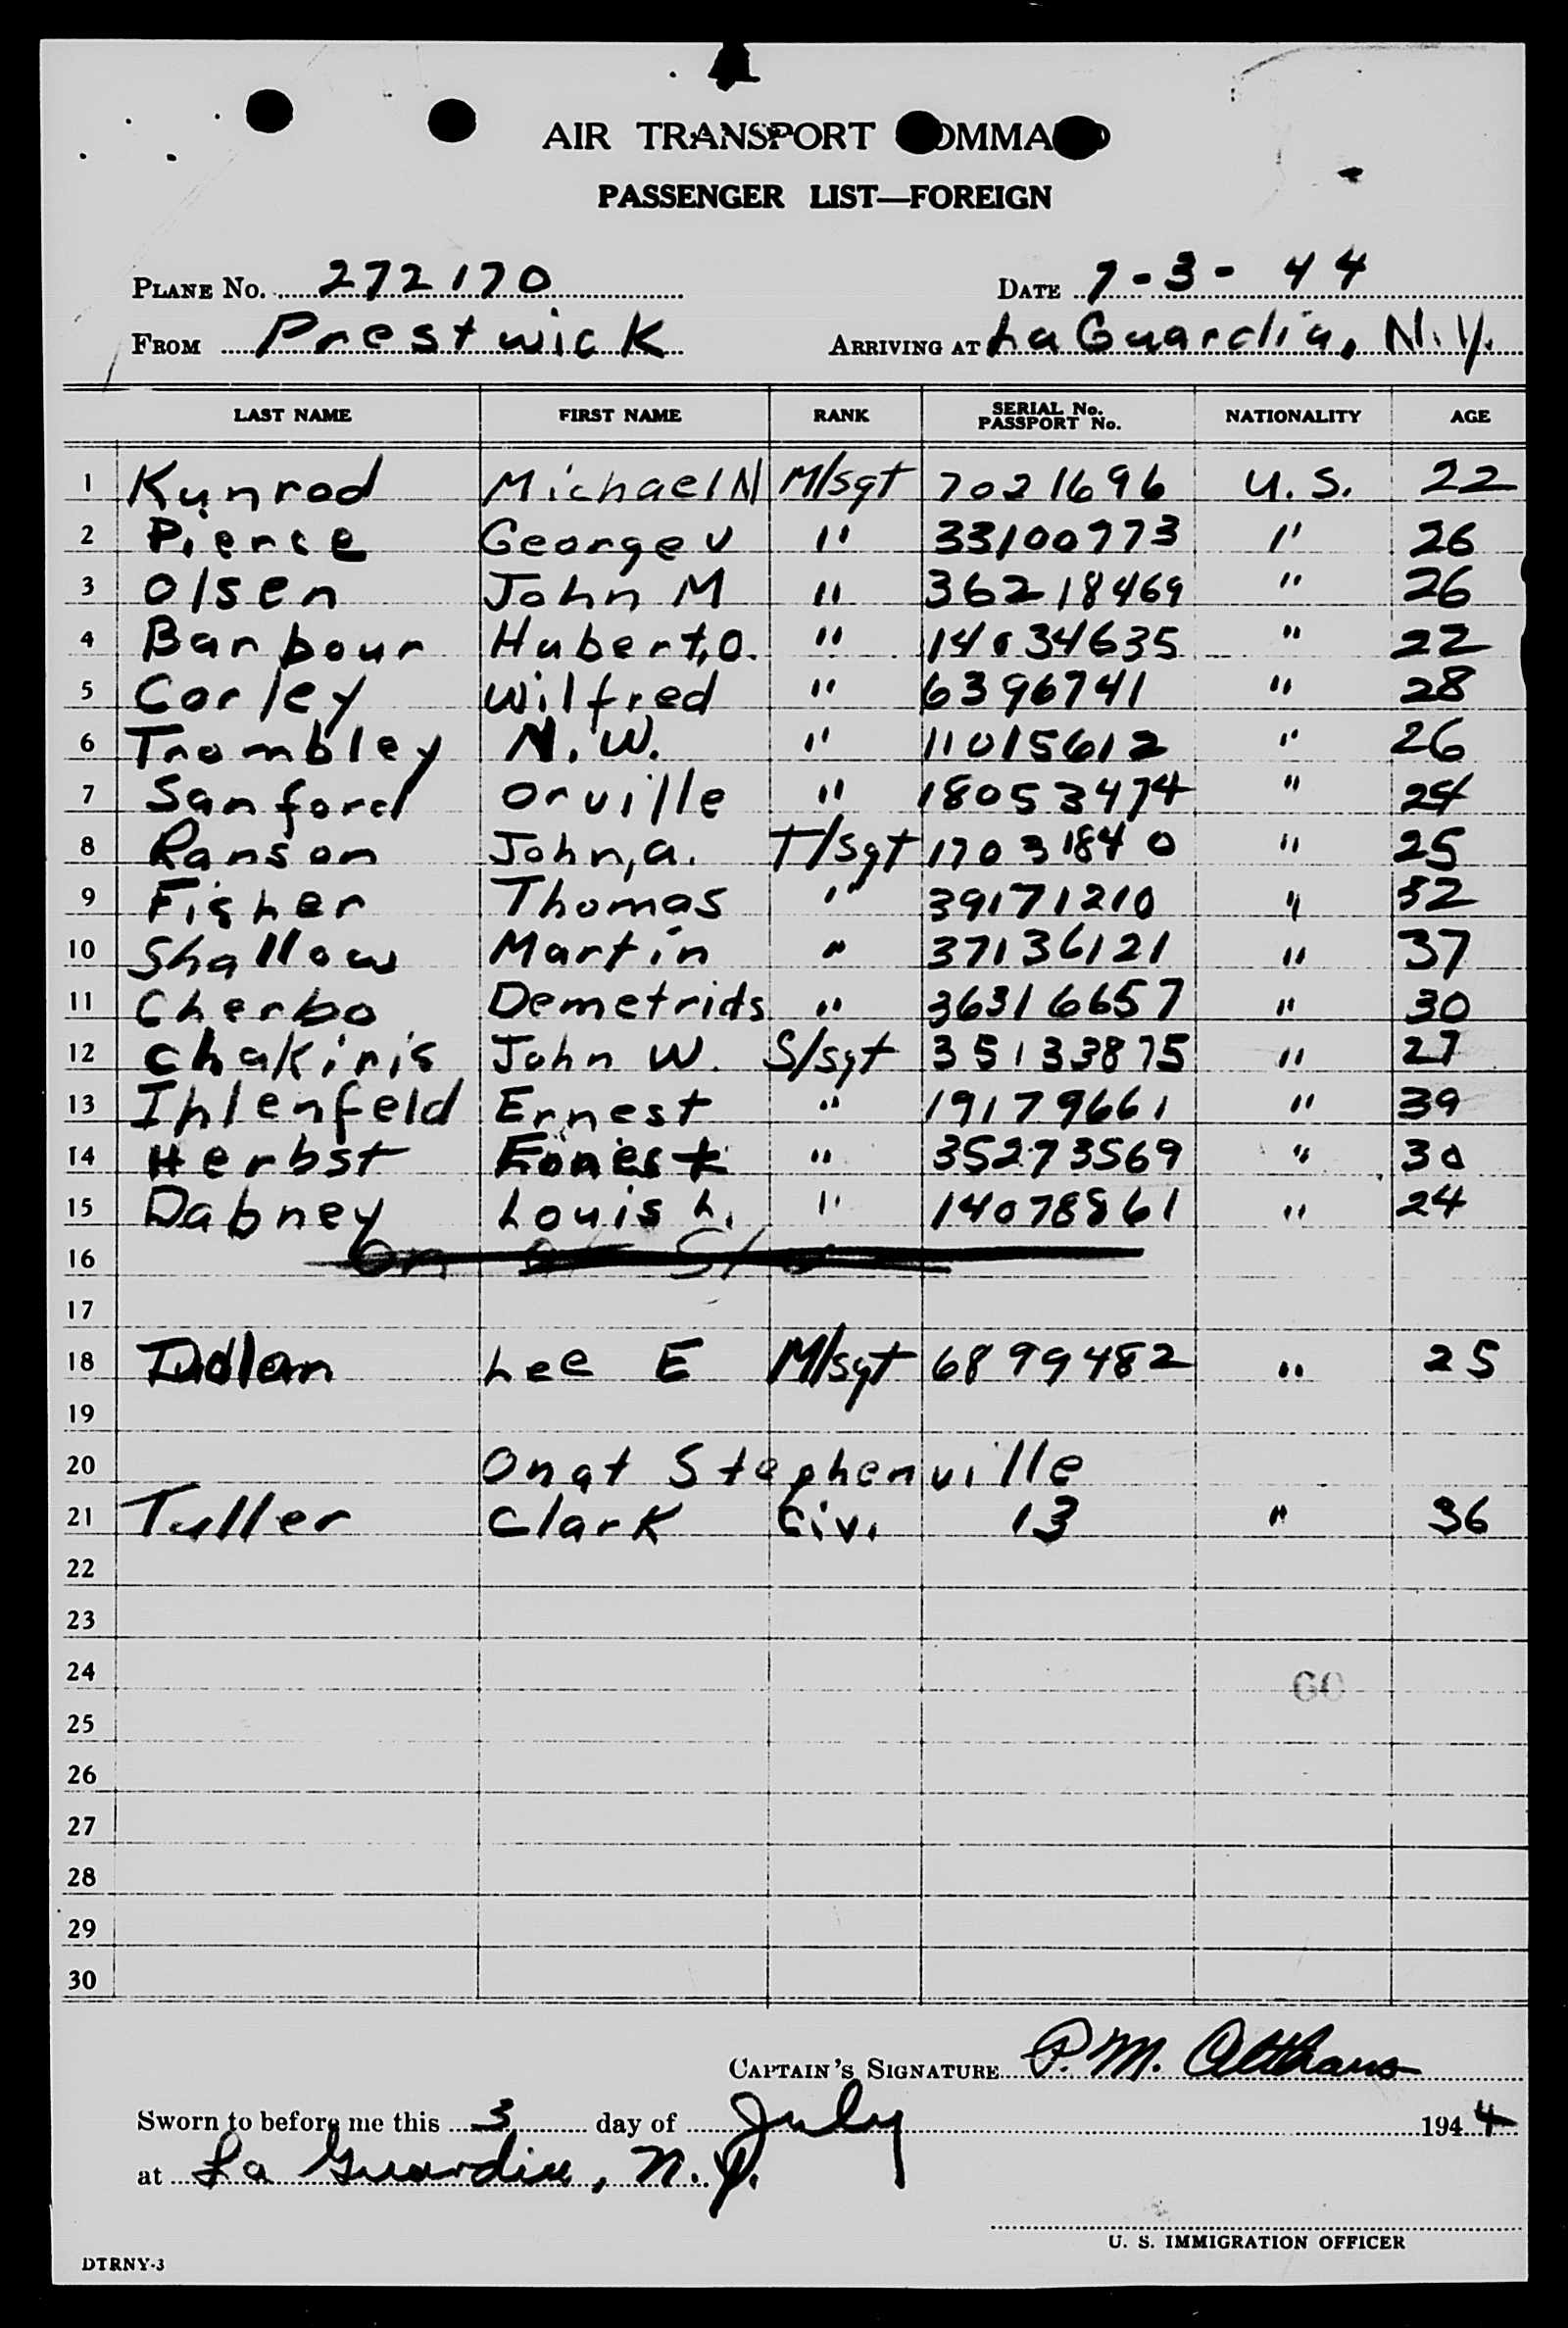 AIR TRANSPORT COMMAND
PASSENGER LIST—FOREIGN
PLANE No. 272170 DATE 7-3-44
FROM Prestwick ARRIVING AT La Guardia, N.Y.
LAST NAME FIRST NAME RANK SERIAL No. PASSPORT No. NATIONALITY AGE
1 Kunrod Michael N M/sgt 7021696 U.S. 22
2 Pierce George V " 33100773 " 26
3 Olsen John M " 36218469 " 26
4 Barbour Hubert, O. " 14034635 " 22
5 Corley Wilfred " 6396741 " 28
6 Trombley N. W. " 11015612 " 26
7 Sanford Orville " 18053474 " 24
8 Ranson John, a. T/sgt 17031840 " 25
9 Fisher Thomas " 39171210 " 32
10 Shallow Martin " 37136121 " 37
11 Cherbo Demetrids " 36316657 " 30
12 Chakiris John W. S/sgt 35133875 " 27
13 Ihlenfeld Ernest " 19179661 " 39
14 Herbst " 35273569 " 30
15 Dabney Louis L. " 14078861 " 24
16
17
18 Lee E M/sgt 6899482 " 25
19
20 On at Stephenville
21 Tuller Clark Civ. 13 " 36
22
23
24 60
25
26
27
28
29
30
CAPTAIN'S SIGNATURE P. M. Althaus
Sworn to before me this 3 day of July 1944
at La Guardia, N.Y.
U. S. IMMIGRATION OFFICER
DTRNY-3